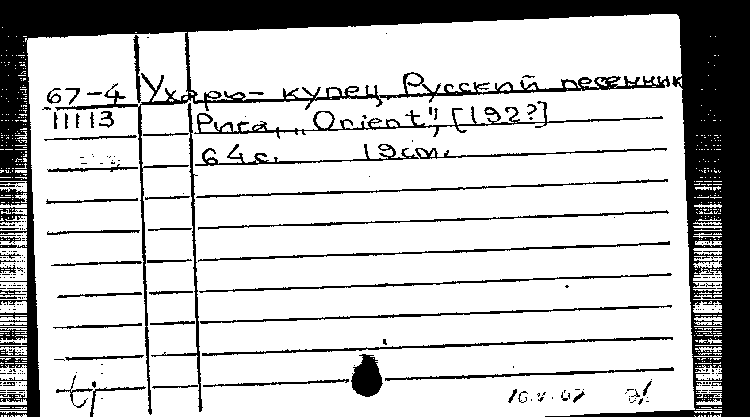 67-4 Ухарь-купец. Русский песенник
11113 Рига, „Orient", [192?]
64 с. 19 cm.